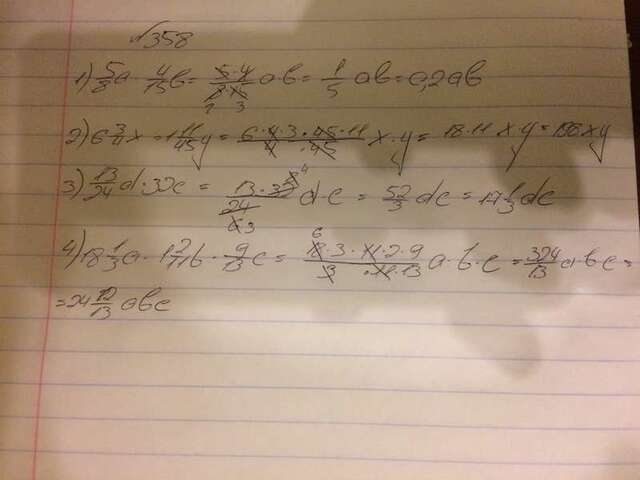 №358
1) 5/8 a · 4/15 b = 5·4/8·15 a·b = 1/5 ab = 0,2ab
2) 6 3/4 x · 1 11/45 y = 6·4·3·45·11/4·45 x·y = 18·11 x·y = 198xy
3) 13/24 d · 32c = 13·32/24 d·c = 52/3 dc = 17 1/3 dc
4) 18 1/3 a · 1 2/11 b · 9/13 c = 18·3·11·2·9/3·11·13 a·b·c = 324/13 a·b·c =
= 24 12/13 abc